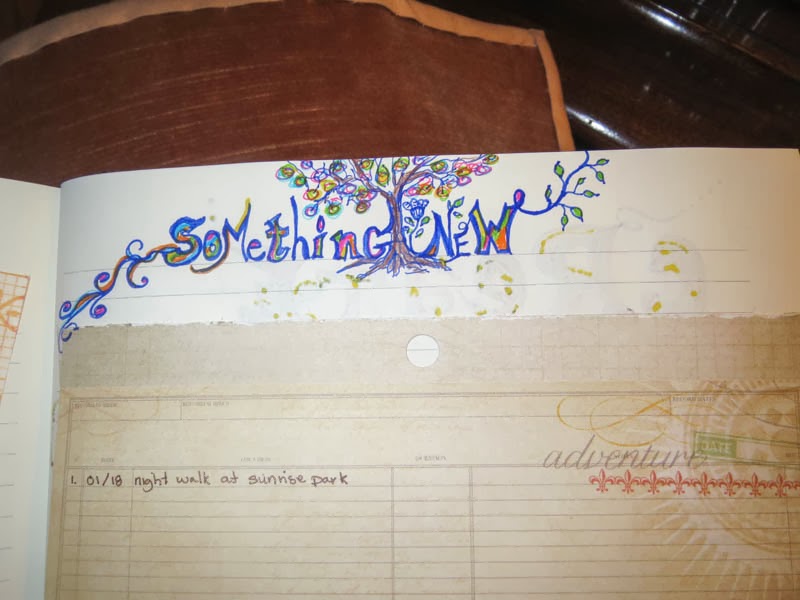 SoMething New
adventure
DATE
1. 01/18 night walk at sunrise park